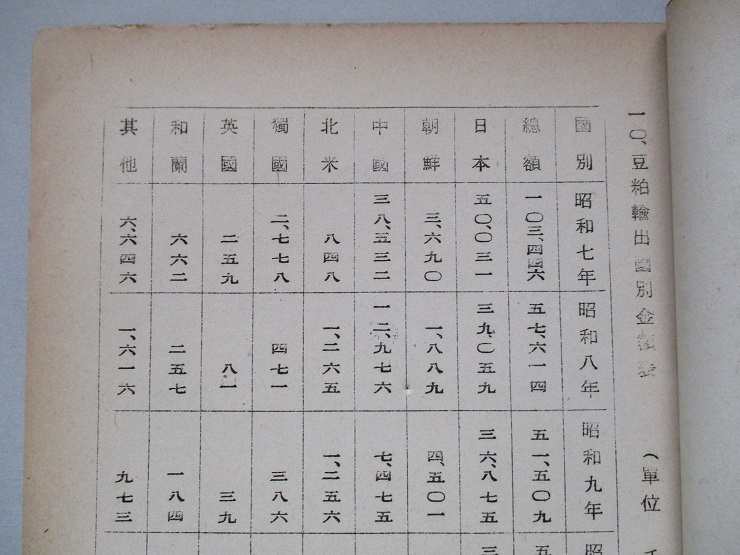 一〇、豆粕輸出國別金額表　（單位
國別　昭和七年　昭和八年　昭和九年　昭
總額　一〇三、四四六　五七、六一四　五一、五〇九　五
日本　五〇、〇三一　三九、〇五九　三六、八七五　三
朝鮮　三、六九〇　一、八八九　四、五〇一
中國　三八、五三二　一二、九七六　七、四七五
北米　八四八　一、二六五　一、二五六
獨國　二、七七八　四七一　三八六
英國　二五九　八一　三九
和蘭　六六二　二五七　一八四
其他　六、六四六　一、六一六　九七三